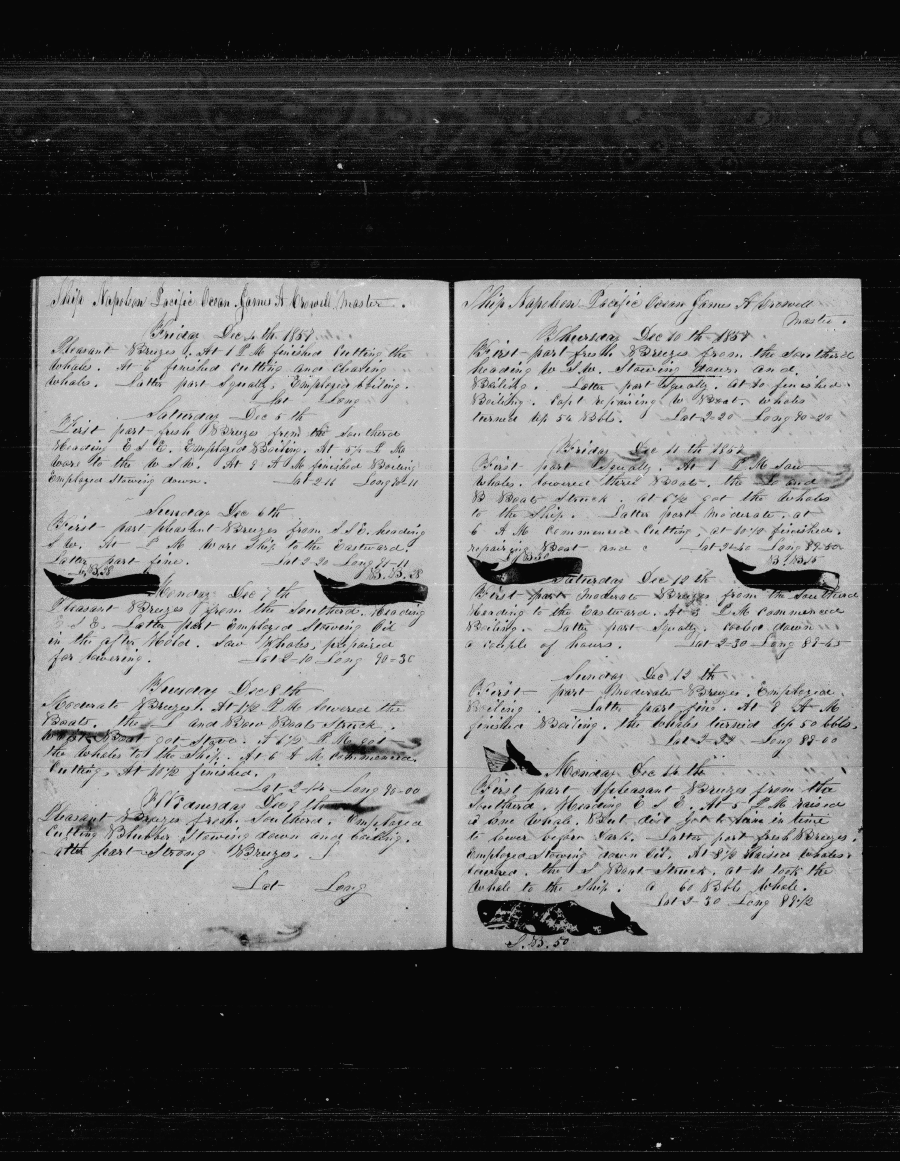 Ship Napoleon Pacific Ocean James A Crowell Master.
Friday Dec 4 th 1857
Pleasant Breezes. At 1 P M finished Cutting the
whales. At 6 finished Cutting and cleaning
whales. Latter part Squally, Employed boiling.
Lat Long
Saturday Dec 5 th
First part fresh Breezes from the Southerd
Heading E S E. Employed Boiling. At 5½ P M
wore to the W S W. At 9 A M finished Boiling
Employed Stowing down. Lat 2-16 Long
Sunday Dec 6 th
First part pleasant Breezes from S S E. heading
S W. At P M wore Ship to the Eastward.
Latter part fine. Lat 2-20 Long 91-11
Monday Dec 7 th
Pleasant Breezes from the Southerd. Heading
E S E. Latter part Employed Stowing Oil
in the after Hoold. Saw Whales, prepaired
for lowering. Lat 2-10 Long 90-30
Tuesday Dec 8 th
Moderate Breezes. At 1½ P M lowered the
Boats. the L and Bow Boats Struck.
Boat got Stove. 6½ P M got
the whales to the Ship. At 6 A M Commenced
Cutting. At 10½ finished.
Lat 2-14 Long 90-00
Wednesday Dec 9 th
Pleasant Breezes fresh. Southerd. Employed
Cutting Blubber Stowing down and boiling.
atter part Strong Breezes.
Lat Long
Ship Napoleon Pacific Ocean James A Crowell
Master.
Thursday Dec 10 th 1857
First part fresh Breezes from the Southerd
heading W S W. Stowing down and
Boiling. Latter part Squally. at 10 finished
Boiling. Capt repairing W Boat. Whales
turned up 54 Bbls. Lat 2-20 Long 90-20
Friday Dec 11 th 1857
First part Squally. At 1 P M Saw
whales. lowered three Boats. the L and
B Boats Struck. at 6½ got the whales
to the Ship. Latter part Moderate. at
6 A M Commenced Cutting, at 10½ finished.
repairing Boat and c Lat 2-40 Long 89-50
Saturday Dec 12 th
First part Moderate Breezes from the Southerd
Heading to the Eastward. At 3 P M commenced
Boiling. Latter part Squally. cooled down
a couple of hours. Lat 2-30 Long 89-45
Sunday Dec 13 th
First part Moderate Breezes. Employed
Boiling. Latter part fine. At 8 A M
finished Boiling. the Whales turned up 50 bbls.
Lat 2-23 Long 89-00
Monday Dec 14 th
First part pleasant Breezes from the
Southerd. Heading E S E. At 5 P M raised
a one whale. But did got to him in time
to lower before Dark. Latter part fresh Breezes.
Employed Stowing down Oil. At 8½ Raised whales
lowered. the S Boat Struck. at 10 took the
Whale to the Ship. a 60 Bbls whale.
Lat 2-30 Long 89-12
S. B. 50